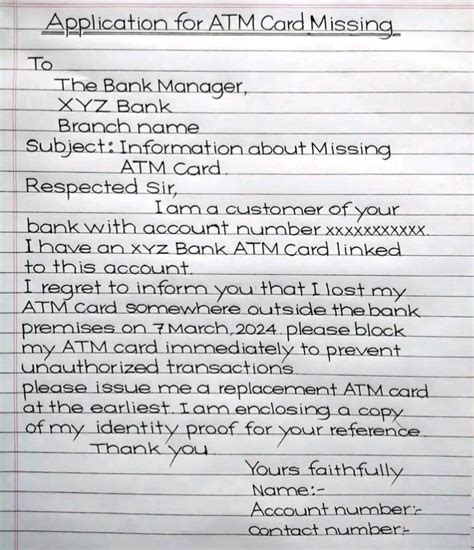 Application for ATM Card Missing
To
The Bank Manager,
XYZ Bank
Branch name
Subject: Information about Missing
ATM Card.
Respected Sir,
I am a customer of your
bank with account number xxxxxxxxxxx.
I have an XYZ Bank ATM Card linked
to this account.
I regret to inform you that I lost my
ATM Card somewhere outside the bank
premises on 7 March, 2024. please block
my ATM card immediately to prevent
unauthorized transactions.
please issue me a replacement ATM card
at the earliest. I am enclosing a copy
of my identity proof for your reference.
Thank you
Yours faithfully
Name:-
Account number:-
Contact number:-